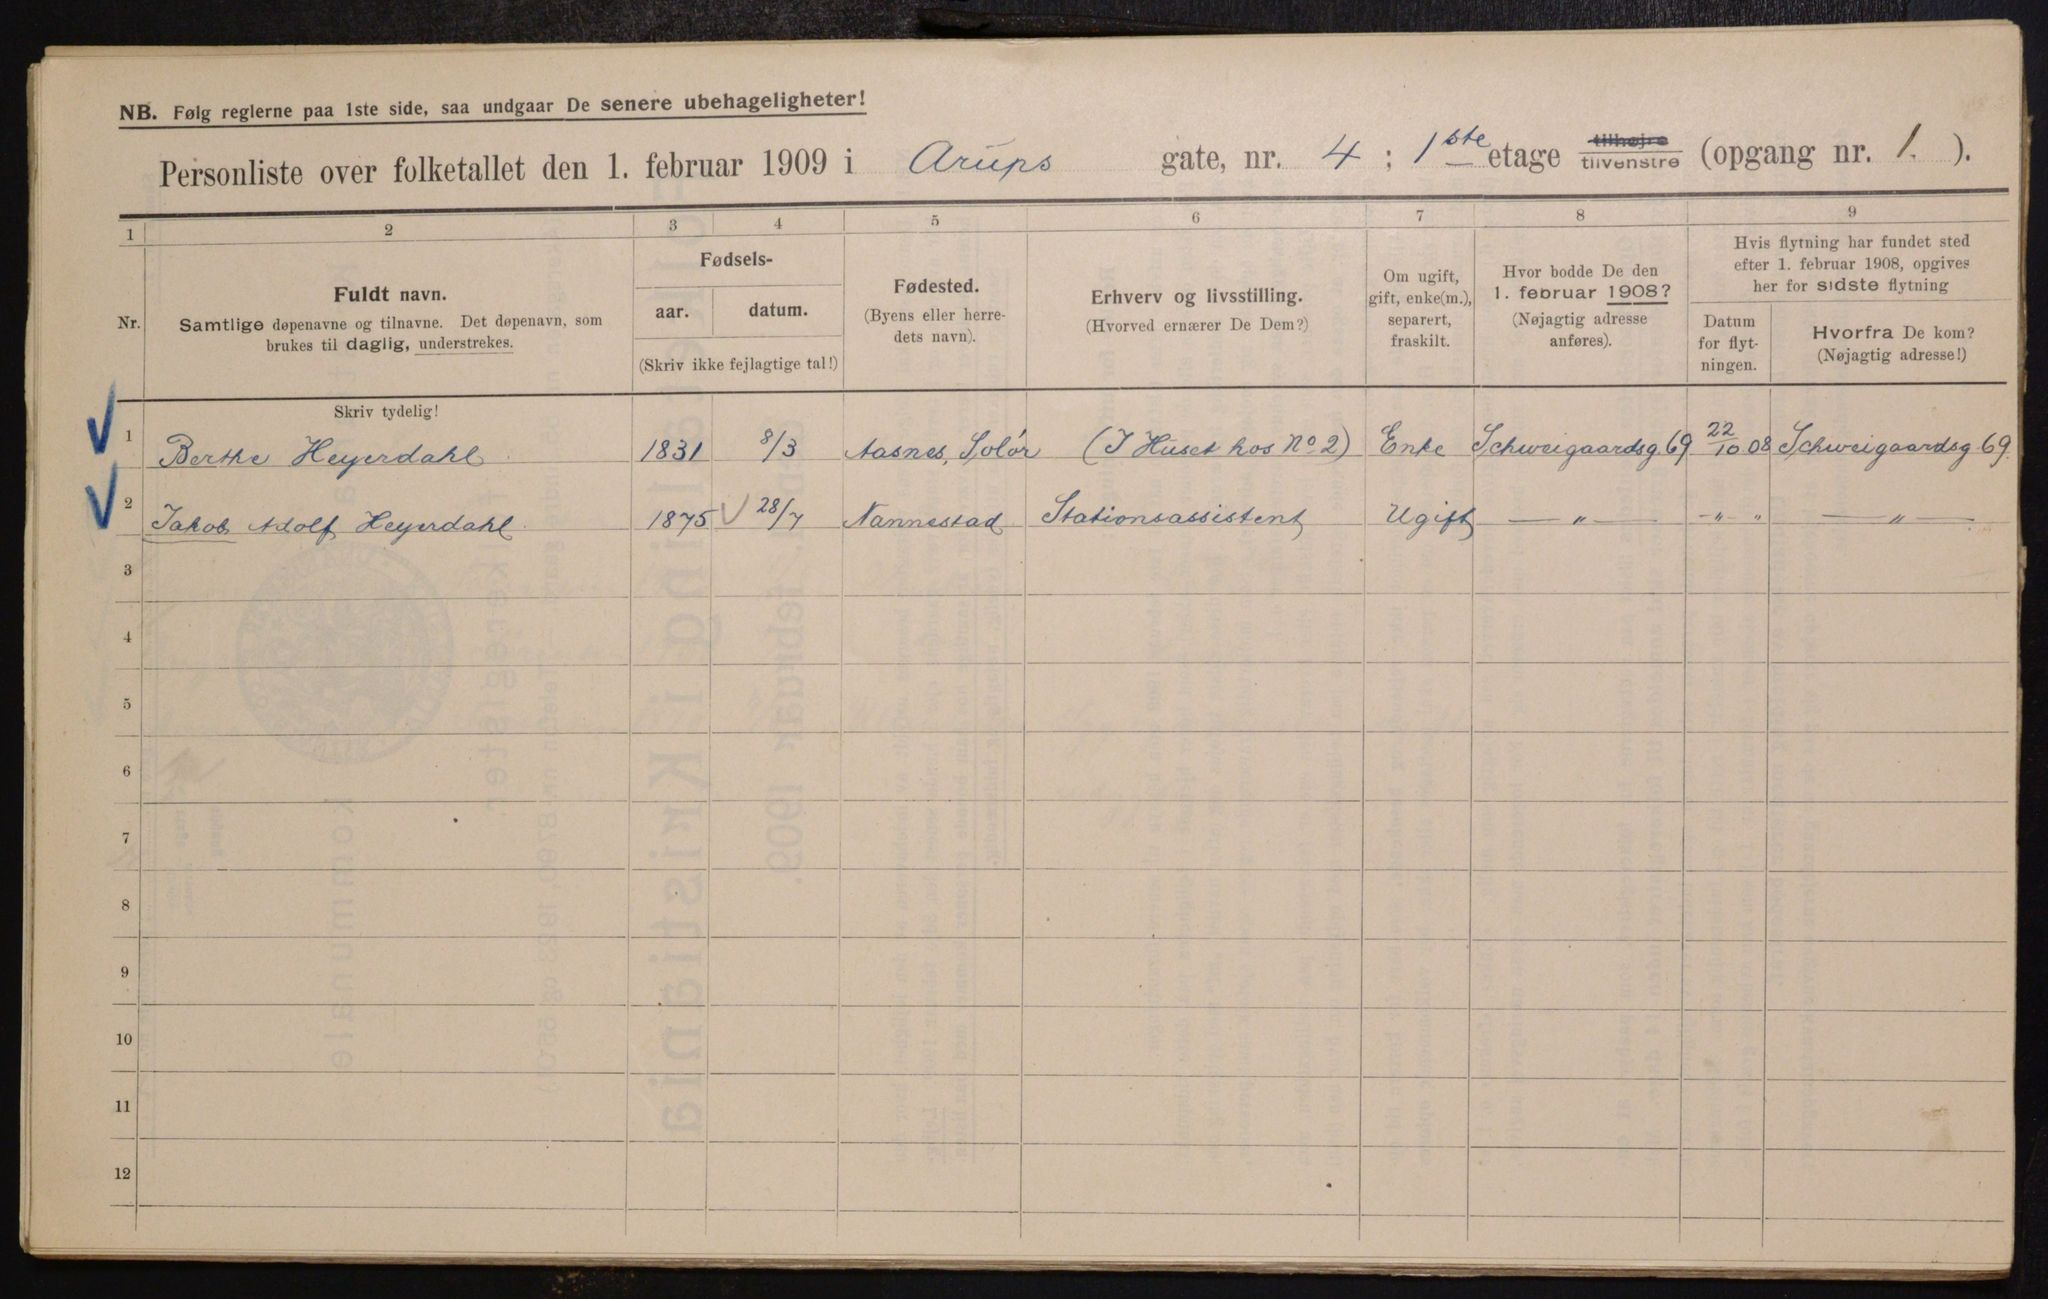 NB. Følg reglerne paa 1ste side, saa undgaar De senere ubehageligheter!
Personliste over folketallet den 1. februar 1909 i Arups gate, nr. 4 ; 1ste etage tilhøjre tilvenstre (opgang nr. 1. ).
1 2 3 4 5 6 7 8 9
Nr.
Fuldt navn.
Samtlige døpenavne og tilnavne. Det døpenavn, som
brukes til daglig, understrekes.
Fødsels-
aar. datum.
(Skriv ikke fejlagtige tal!)
Fødested.
(Byens eller herre-
dets navn).
Erhverv og livsstilling.
(Hvorved ernærer De Dem?)
Om ugift,
gift, enke(m.),
separert,
fraskilt.
Hvor bodde De den
1. februar 1908?
(Nøjagtig adresse
anføres).
Hvis flytning har fundet sted
efter 1. februar 1908, opgives
her for sidste flytning
Datum
for flyt-
ningen.
Hvorfra De kom?
(Nøjagtig adresse!)
Skriv tydelig!
1 Berthe Heyerdahl. 1831 8/3 Aasnes, Solør (I Huset hos No 2) Enke Schweigaardsg. 69 22/10 08 Schweigaardsg. 69.
2 Jakob Adolf Heyerdahl. 1875 28/7 Nannestad Stationsassistent Ugift — " — - " " — " —
3
4
5
6
7
8
9
10
11
12